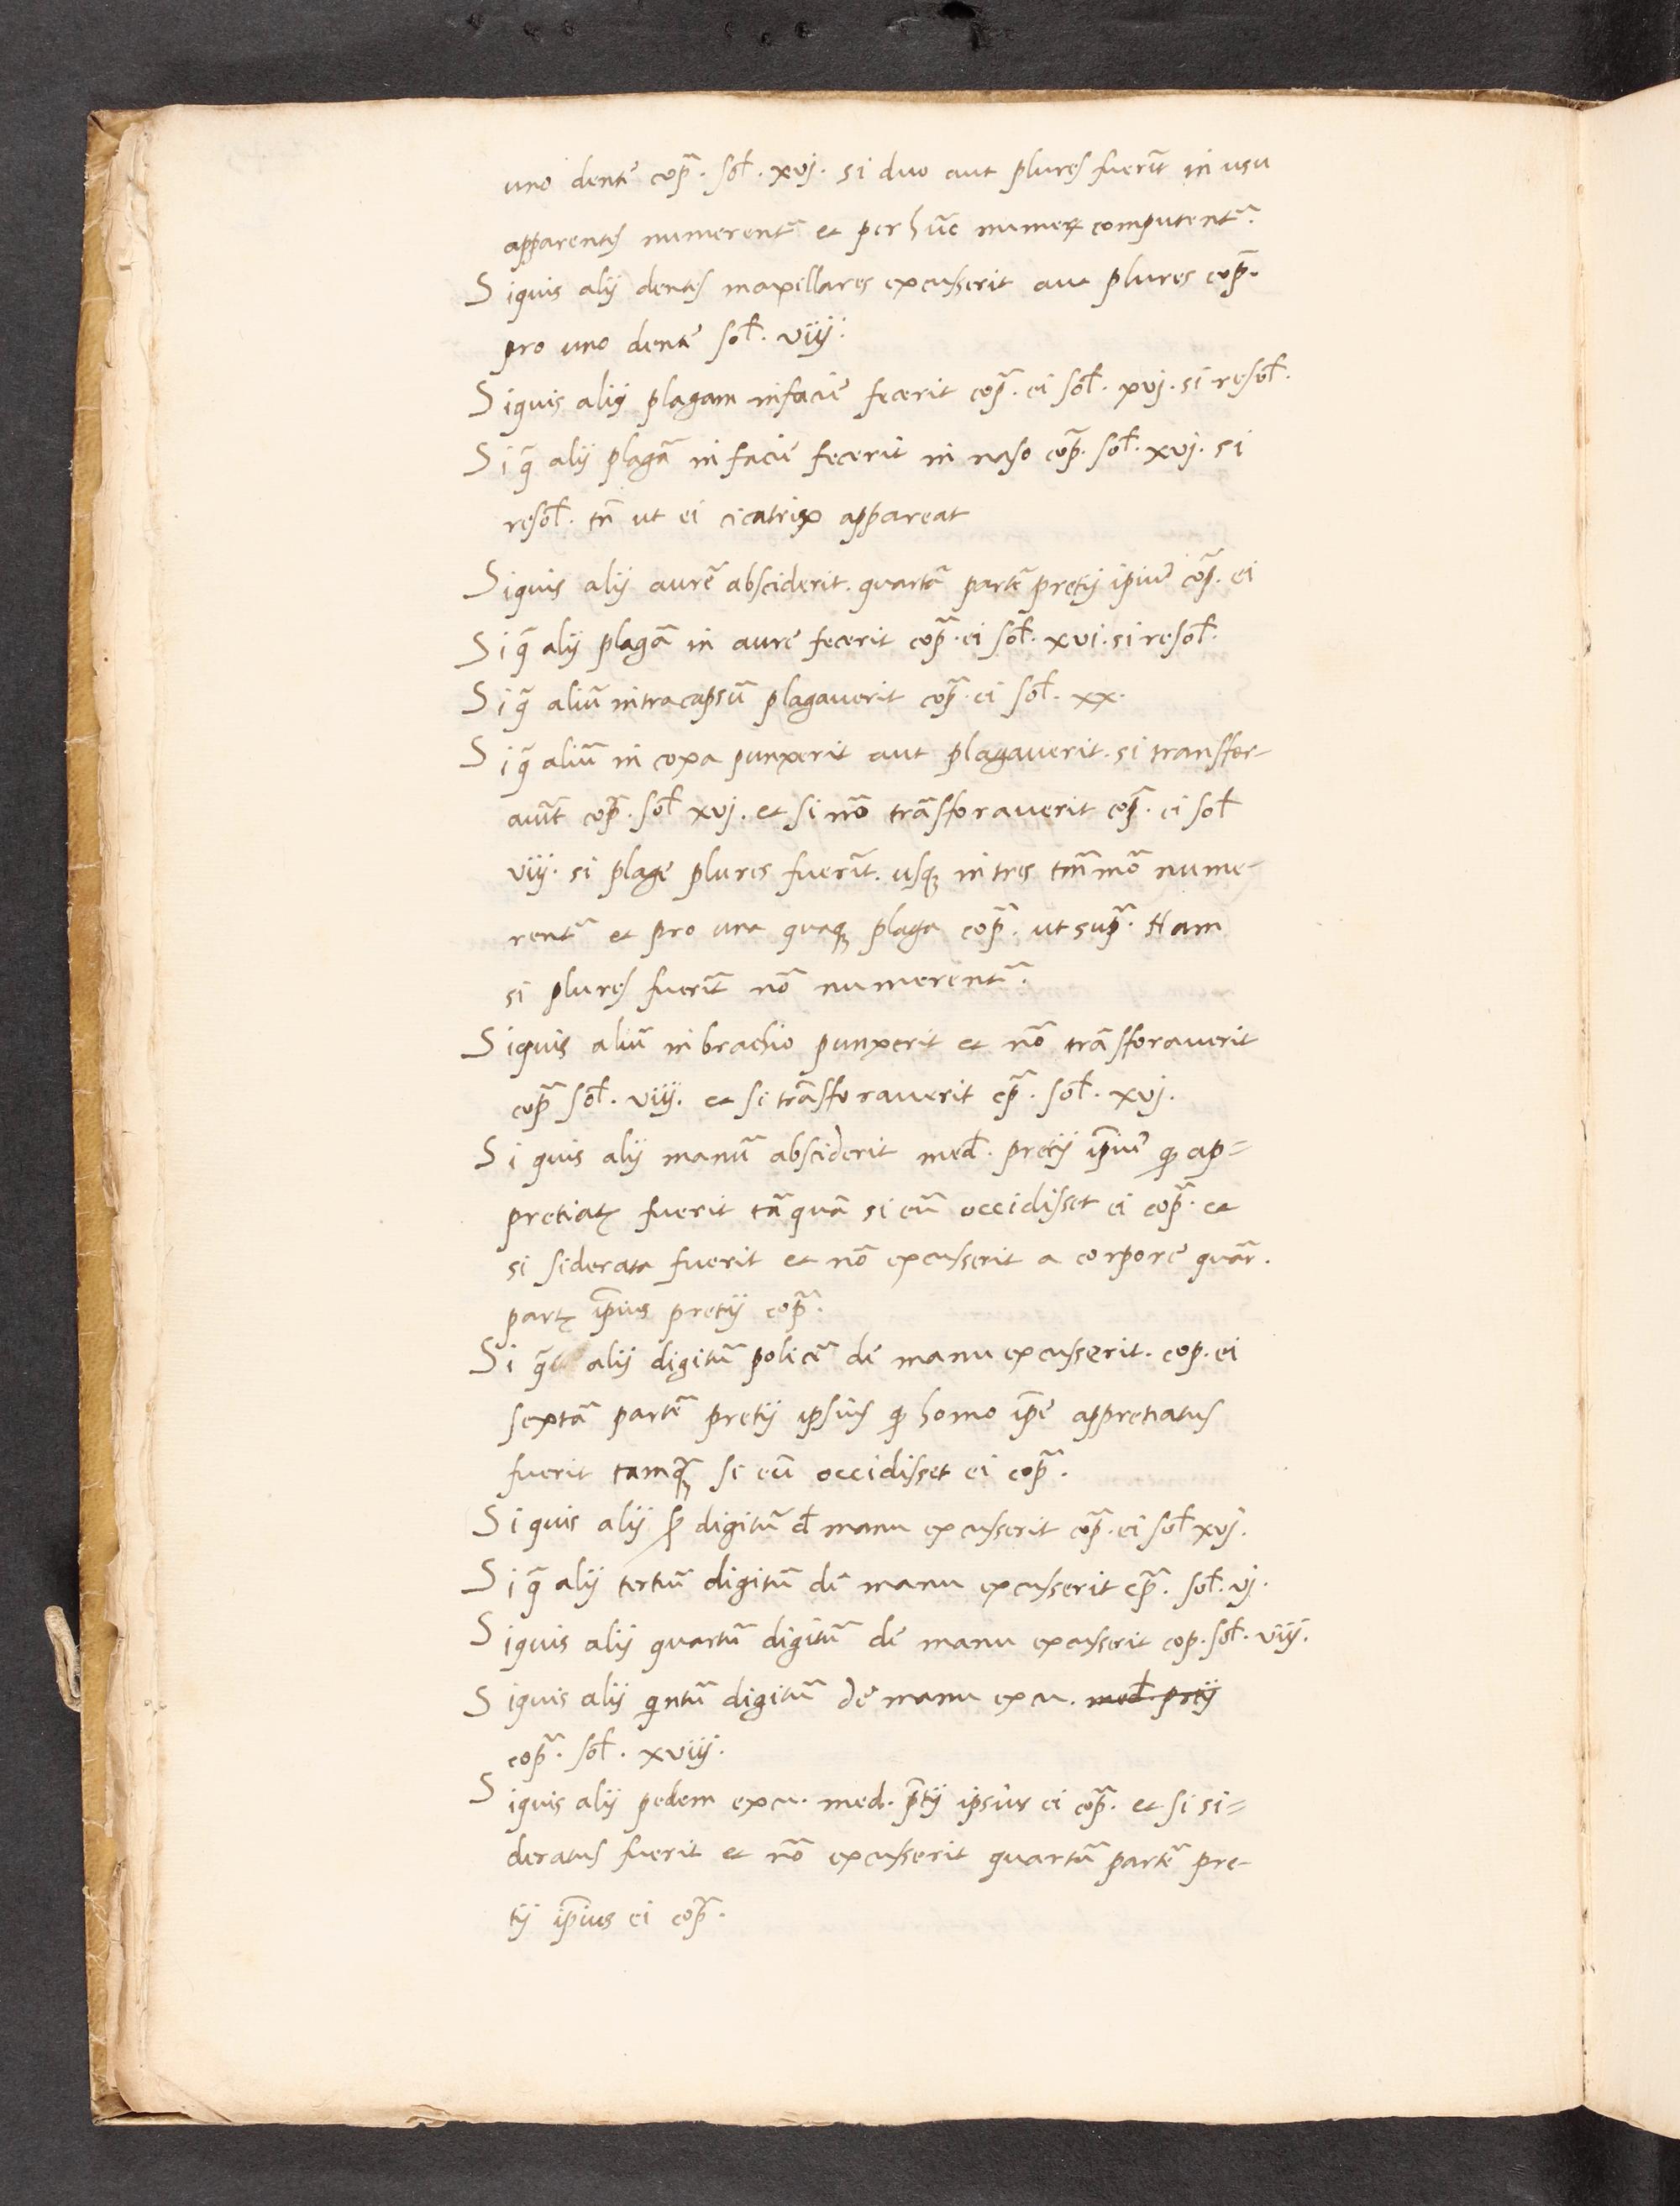 uno dentẽ cop̃. sol̃. xvj. si duo aut plures fuerĩt in usu
apparentes numerent᷑ et per hũc numeꝝ computent᷑.
Siquis alij dentes maxillares excusserit aut plures cop̃.
pro uno dentẽ sol̃. viij.
Siquis alij plagam infaciẽ fecerit cop̃. ei sol̃. xvj. si resol̃.
Si q̃ alij plagã in faciẽ fecerit in naso cop̃. sol̃. xvj. si
resol̃. tñ ut ei cicatrix appareat
Siquis alij aurẽ absciderit. quartã partẽ pretij ipiuˀ cop̃. ei
Si q̃ alij plagã in aurẽ fecerit cop̃. ei sol̃. xvi. si resol̃.
Si q̃ aliũ intracapsũ plagaverit cop̃. ei sol̃. xx.
Si q̃ aliũ in coxa punxerit aut plagaverit. si transfor-
avit̃ cop̃. sol̃ xvj. et si nõ trãsforaverit cop̃. ei sol̃
viij. si plagẽ plures fuerĩt. usqꝫ in tres tm̃mõ nume-
rent᷑ et pro una quaqꝫ plaga cop̃. ut supˀ. Nam
si plures fuerĩt nõ numerent᷑.
Siquis aliũ in brachio punxerit et nõ trãsforaverit
cop̃ sol̃. viij. et si trãsforaverit cp̃. sol̃. xvj.
Si quis alij manũ absciderit med̃. pretij ip̃iuˀ ꝙ ap=
pretiatꝫ fuerit tã quã si eũ occidisset ei cop̃. et
si siderata fuerit et nõ excusserit a corporẽ quar̃.
partẽ ip̃ius pretij cop̃.
Si q̃ alij digitũ policẽ dẽ manu excusserit. cop. ei
sextã partẽ pretij ipsius ꝙ homo ip̃e appretiatus
fuerit tamqꝫ si eũ occidisset ei cop̃.
Si quis alij digitũ d̃ manu excusserit cop̃. ei sol̃ xvj.
Si q̃ alij tertiũ digitũ dẽ manu excusserit cp̃. sol̃. vj.
Siquis alij quartũ digitũ dẽ manu excusserit cop. sol̃. viij.
Siquis alij qintũ digitũ dẽ manu excu. med̃. prtij
cop̃. sol̃. xviij.
Siquis alij pedem excu. med. p̃tij ipsius ei cop̃. et si si=
deratus fuerit et nõ excusserit quartã partẽ pre-
tij ip̃ius ei cop̃.